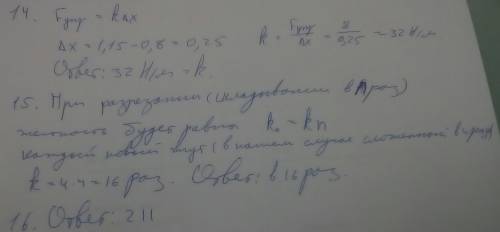 14. Fупр = kΔx
Δx = 1,15 - 0,8 = 0,25 k = Fупр/Δx = 8/0,25 = 32 Н/м
Ответ: 32 Н/м = k.
15. При разрезании (складывании в n раз)
жесткость будет равна k₀ = kn
каждый новый жгут (в нашем случае сложенной в
k = 4·4 = 16 раз. Ответ: в 16 раз.
16. Ответ: 211